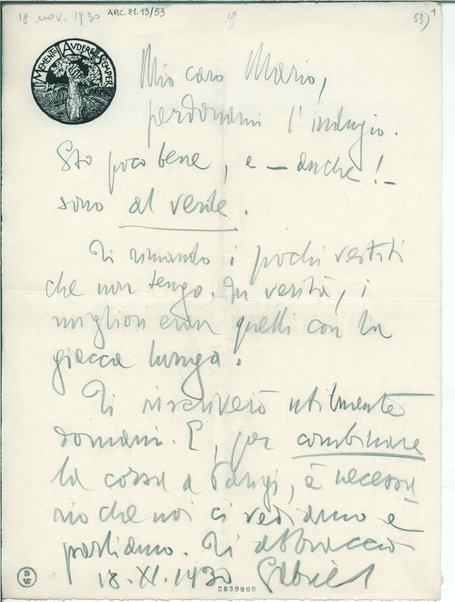 18 nov. 1930
ARC. 21.13/53
19
53) 1
MEMENTO AUDERE SEMPER
Mio caro Mario,
perdonami l'indugio.
Sto poco bene, e – anche! –
sono al verde.
Ti rimando i pochi vestiti
che non tengo. In verità, i
migliori eran quelli con la
giacca lunga.
Ti riscriverò utilmente
domani. E, per combinare
la corsa a Parigi, è necessa
rio che noi ci vediamo e
parliamo. Ti abbraccio
18. XI. 1930
2839800